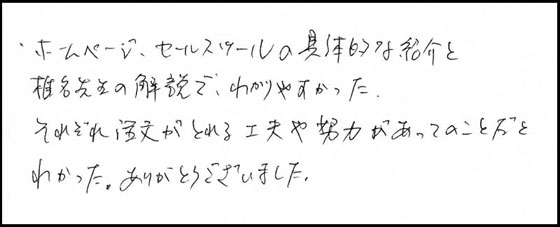 ・ホームページ、セールスツールの具体的な紹介と
椎名先生の解説で、わかりやすかった.
それぞれ注文がとれる工夫や努力があってのことだと
わかった。ありがとうございました.